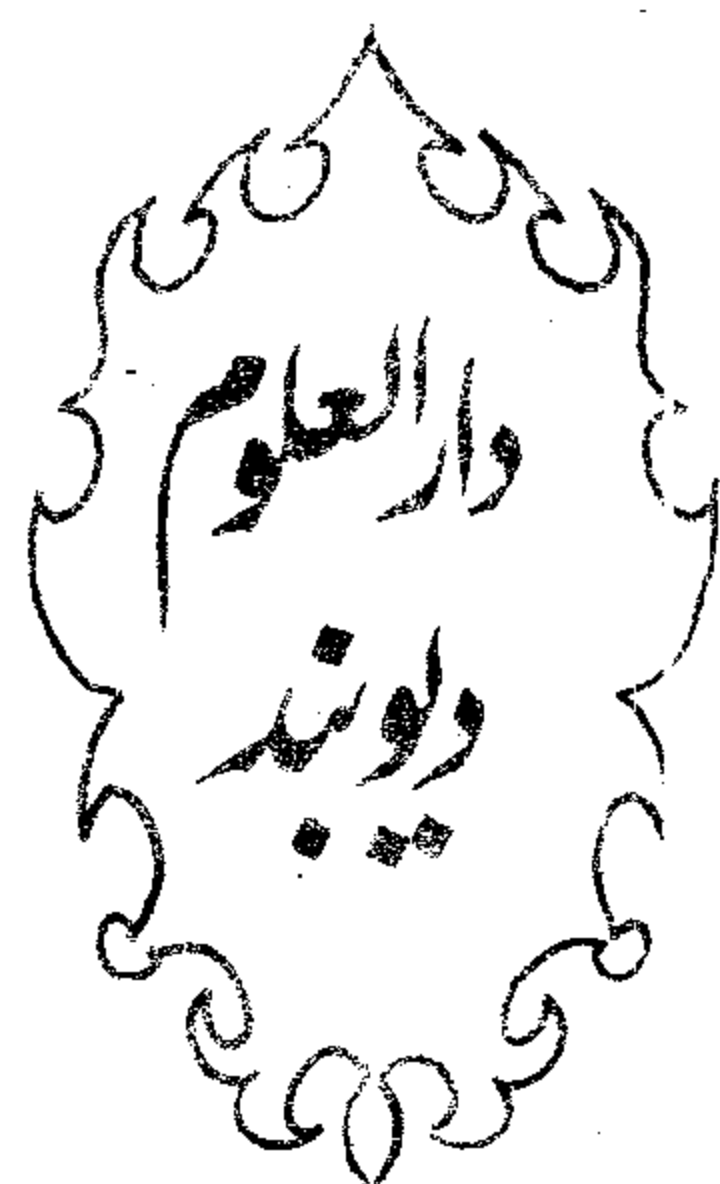 دارالعلوم
دیوبند